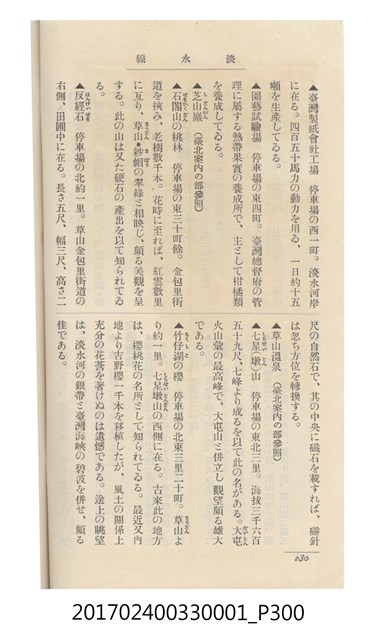 淡水線
▲臺灣製紙會社工場　停車場の西一町。淡水河岸
に在る。四百五十馬力の動力を用ゐ、一日約十五
噸を生產してゐる。
▲園藝試驗場　停車場の東四町。臺灣總督府の管
理に屬する熱帶果實の養成所で、主として柑橘類
を養成してゐる。
▲芝山巖（臺北案內の部參照）
▲石閣山の桃林　停車場の東三十町餘。金包里街
道を挾み、老樹數千本。花時に至れば、紅雲數里
に亙り、草山・紗帽の翠綠と相映じ、頗る美觀を呈
する。此の山は又た硬石の產出を以て知られてゐ
る。
▲反經石　停車場の北約一里。草山金包里街道の
右側、田圃中に在る。長さ五尺、幅三尺、高さ二
尺の自然石で、其の中央に磁石を載すれば、磁針
は忽ち方位を轉換する。
▲草山溫泉（臺北案內の部參照）
▲七星（墩）山　停車場の東北三里。海拔三千六百
五十九尺、七峰より成るを以て此の名がある。大屯
火山彙の最高峰で、大屯山と併立し觀望頗る雄大
である。
▲竹仔湖の櫻　停車場の北東三里二十町。草山よ
り約一里。七星墩山の西側に在る。古來此の地方
は、櫻桃花の名所として知られてゐる。最近又內
地より吉野櫻一千本を移植したが、風土の關係上
充分の花蕾を著けぬのは遺憾である。途上の眺望
は、淡水河の銀帶と臺灣海峽の碧波を併せ、頗る
佳である。
230
201702400330001_P300